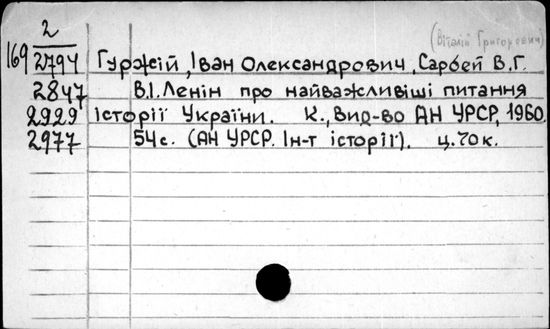 2
(Віталій Григорович)
169 2794 Гуржій, Іван Олександрович, Сарбей В.Г.
2847 В.І. Ленін про найважливіші питання
2929 історії України. К., Вид-во АН УРСР, 1960.
2977 54с. (АН УРСР. Ін-т історії). ц. 70к.